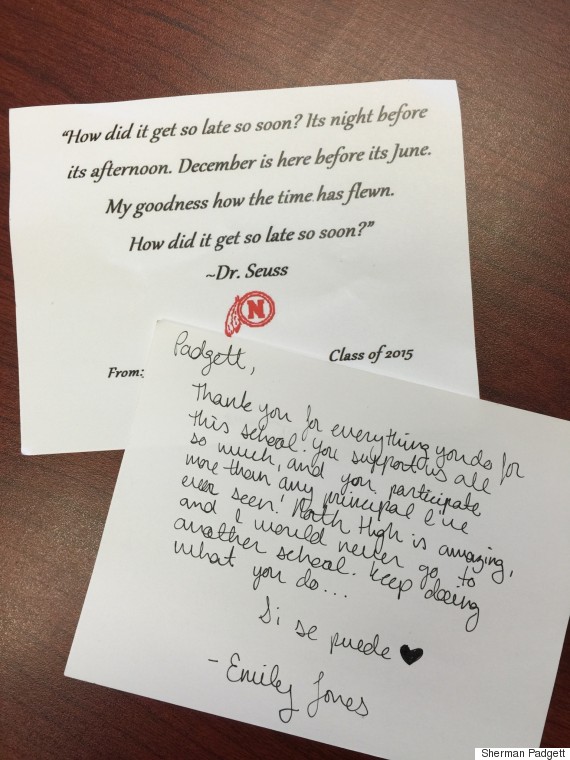 “How did it get so late so soon? Its night before
its afternoon. December is here before its June.
My goodness how the time has flewn.
How did it get so late so soon?”
~Dr. Seuss
N
Class of 2015
From:
Padgett,
Thank you for everything you do for
this school. You support us all
so much, and you participate
more than any principal I've
ever seen! North High is amazing,
and I would never go to
another school. Keep doing
what you do...
Si se puede ♥
- Emily Jones
Sherman Padgett